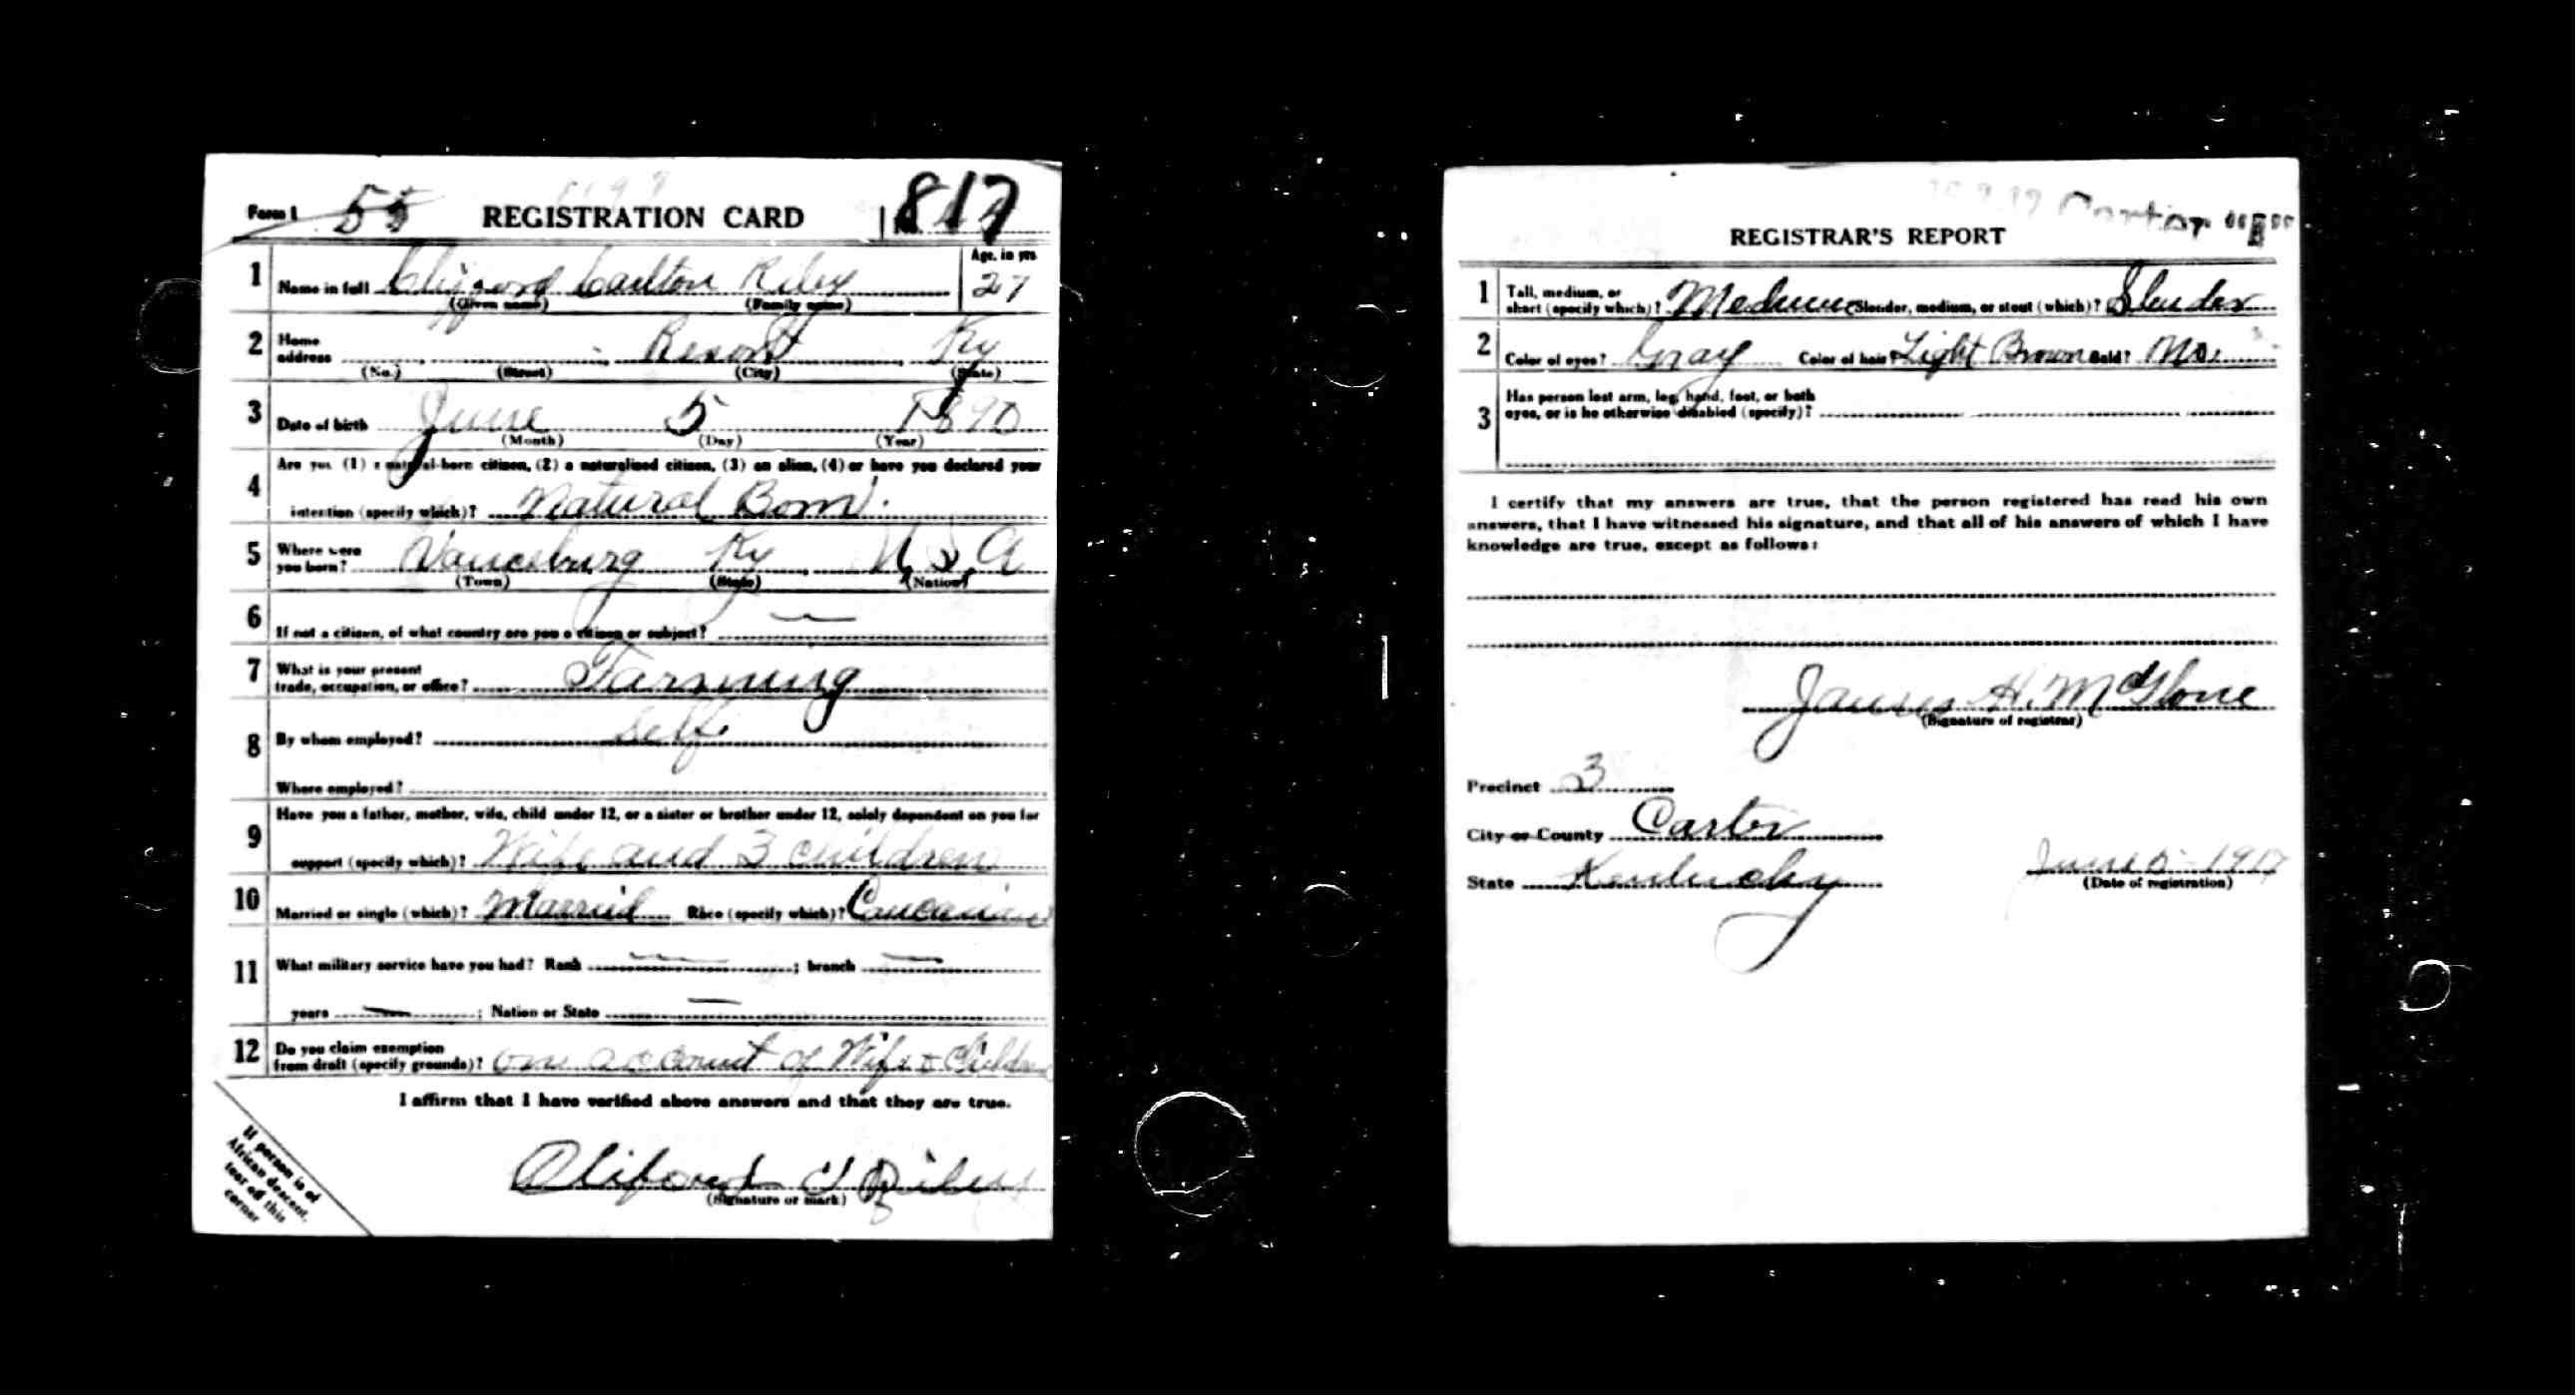 Form 1 55 REGISTRATION CARD No. 817
1 Name in full Clifford Carlton Riley Age, in yrs 27
(Given name) (Family name)
2 Home address Resort Ky
(No.) (Street) (City) (State)
3 Date of birth June 5 1890
(Month) (Day) (Year)
4 Are you (1) a natural-born citizen, (2) a naturalized citizen, (3) an alien, (4) or have you declared your
intention (specify which)? Natural Born.
5 Where were you born? Vanceburg Ky U.S.A
(Town) (State) (Nation)
6 If not a citizen, of what country are you a citizen or subject? —
7 What is your present trade, occupation, or office? Farming
8 By whom employed? Self
Where employed?
9 Have you a father, mother, wife, child under 12, or a sister or brother under 12, solely dependent on you for
support (specify which)? Wife and 3 children
10 Married or single (which)? Married Race (specify which)? Caucasian
11 What military service have you had? Rank — ; branch —
years — ; Nation or State —
12 Do you claim exemption from draft (specify grounds)? on account of Wife & Children
I affirm that I have verified above answers and that they are true.
Cliford C Riley
(Signature or mark)
If person is of
African descent,
tear off this
corner
Carter
REGISTRAR'S REPORT
1 Tall, medium, or short (specify which)? Medium Slender, medium, or stout (which)? Slender
2 Color of eyes? Gray Color of hair? Light Brown Bald? No.
3 Has person lost arm, leg, hand, foot, or both
eyes, or is he otherwise disabled (specify)?
I certify that my answers are true, that the person registered has read his own
answers, that I have witnessed his signature, and that all of his answers of which I have
knowledge are true, except as follows:
James H. McGlone
(Signature of registrar)
Precinct 3
City or County Carter
State Kentucky June 5-1917
(Date of registration)